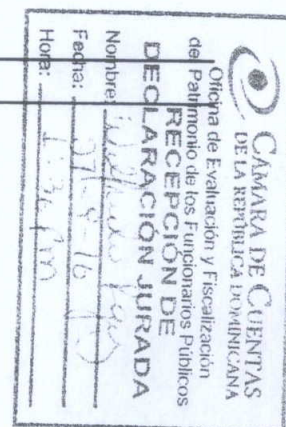 CÁMARA DE CUENTAS
DE LA REPÚBLICA DOMINICANA
Oficina de Evaluación y Fiscalización
de Patrimonio de los Funcionarios Públicos
RECEPCIÓN DE
DECLARACIÓN JURADA
Nombre:
Fecha:
Hora: